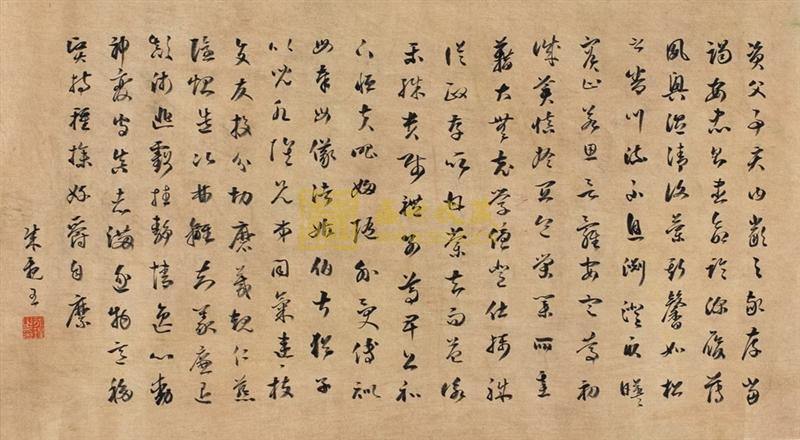 資父事君曰嚴與敬孝當
竭力忠則盡命臨深履薄
夙興溫凊似蘭斯馨如松
之盛川流不息淵澄取映
容止若思言辭安定篤初
誠美慎終宜令榮業所基
籍甚無竟學優登仕攝職
從政存以甘棠去而益詠
樂殊貴賤禮別尊卑上和
下睦夫唱婦隨外受傅訓
入奉母儀諸姑伯叔猶子
比兒孔懷兄弟同氣連枝
交友投分切磨箴規仁慈
隱惻造次弗離節義廉退
顛沛匪虧性靜情逸心動
神疲守真志滿逐物意移
堅持雅操好爵自縻
朱